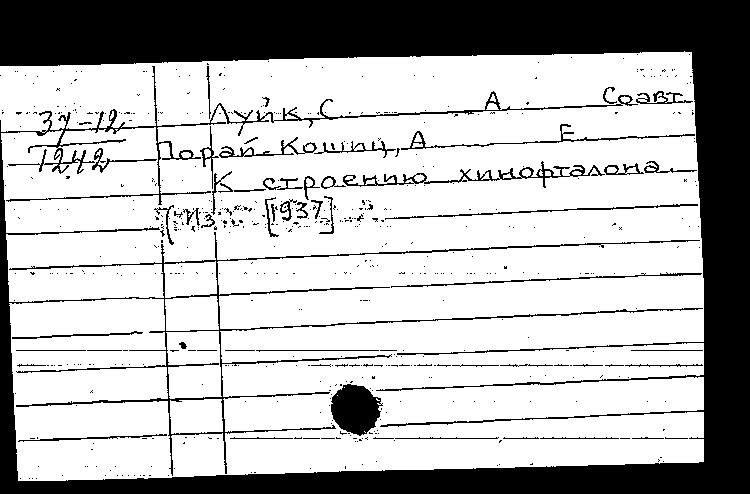 37-12
1242
Луйк, С. А. Соавт.
Порай-Кошиц, А. Е.
К строению хинофталона.
(Из [1937]